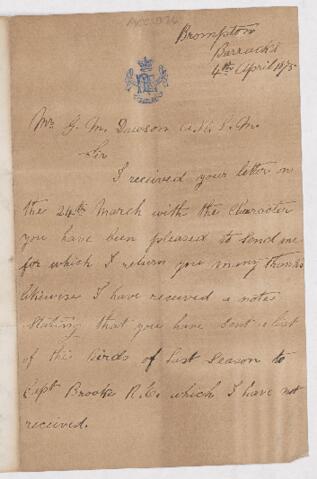 Brompton
Barracks
4th April 1875
Mr G. M. Dawson
Sir
I received your letter on
the 24th March with the Character
you have been pleased to send me
for which I return you many thanks
likewise I have received a note
stating that you have sent a list
of the birds of last season to
Capt Brooke R.E. which I have not
received.